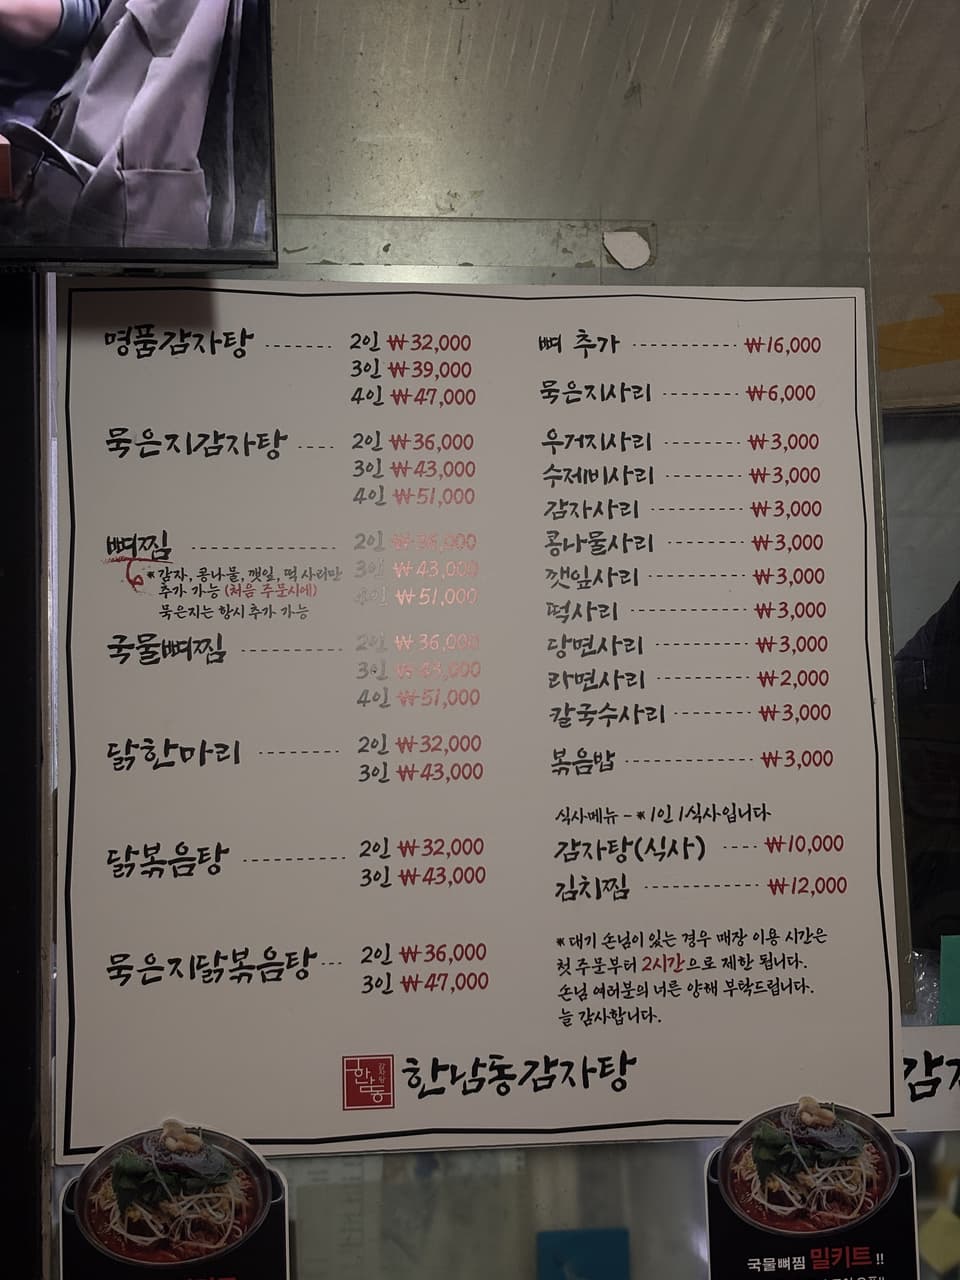 명품감자탕 ------ 2인 ₩32,000
3인 ₩39,000
4인 ₩47,000
묵은지감자탕 ---- 2인 ₩36,000
3인 ₩43,000
4인 ₩51,000
뼈찜 ---------------- 2인 ₩36,000
3인 ₩43,000
4인 ₩51,000
* 감자, 콩나물, 깻잎, 떡 사리만
추가 가능 (처음 주문시에)
묵은지는 항시 추가 가능
국물뼈찜 ----------- 2인 ₩36,000
3인 ₩43,000
4인 ₩51,000
닭한마리 --------- 2인 ₩32,000
3인 ₩43,000
닭볶음탕 ----------- 2인 ₩32,000
3인 ₩43,000
묵은지닭볶음탕 --- 2인 ₩36,000
3인 ₩47,000
뼈 추가 ------------ ₩16,000
묵은지사리 --------- ₩6,000
우거지사리 --------- ₩3,000
수제비사리 --------- ₩3,000
감자사리 ----------- ₩3,000
콩나물사리 --------- ₩3,000
깻잎사리 ----------- ₩3,000
떡사리 ------------- ₩3,000
당면사리 ----------- ₩3,000
라면사리 ----------- ₩2,000
칼국수사리 --------- ₩3,000
볶음밥 ------------- ₩3,000
식사메뉴 - * 1인 1식사입니다
감자탕(식사) ---- ₩10,000
김치찜 ------------- ₩12,000
* 대기 손님이 있는 경우 매장 이용 시간은
첫 주문부터 2시간으로 제한 됩니다.
손님 여러분의 너른 양해 부탁드립니다.
늘 감사합니다.
한남동 감자탕
한남동감자탕
국물뼈찜 밀키트!!